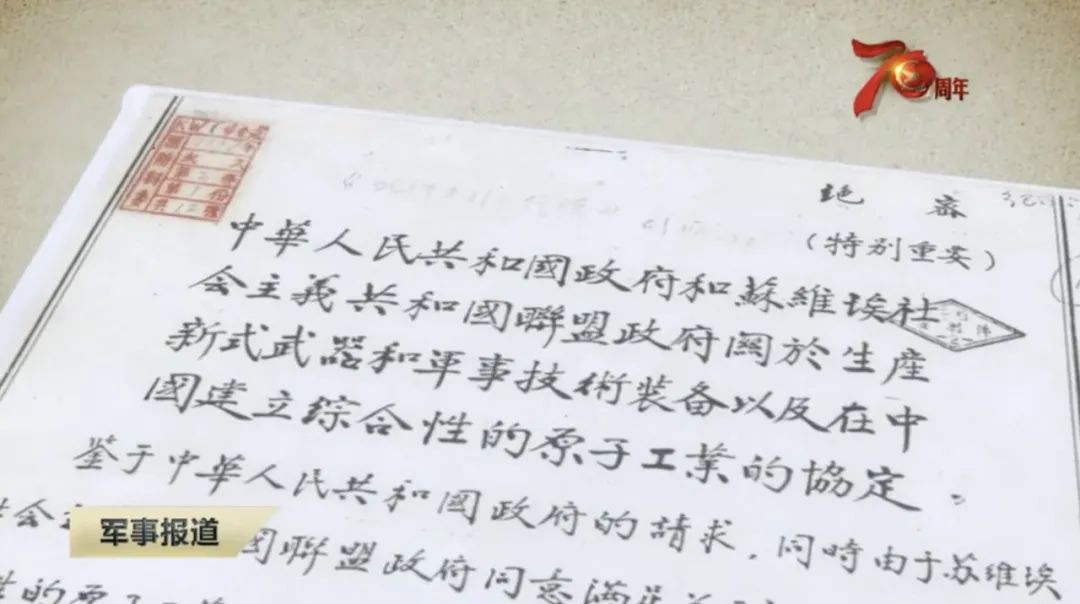 70周年
絶密
(特别重要)
中華人民共和國政府和蘇維埃社
会主義共和國聯盟政府関於生産
新式武器和軍事技術装备以及在中
國建立綜合性的原子工業的協定。
鉴于中華人民共和國政府的請求，同時由于苏維埃
会主 國聯盟政府同意满足
性的原子工
军事报道